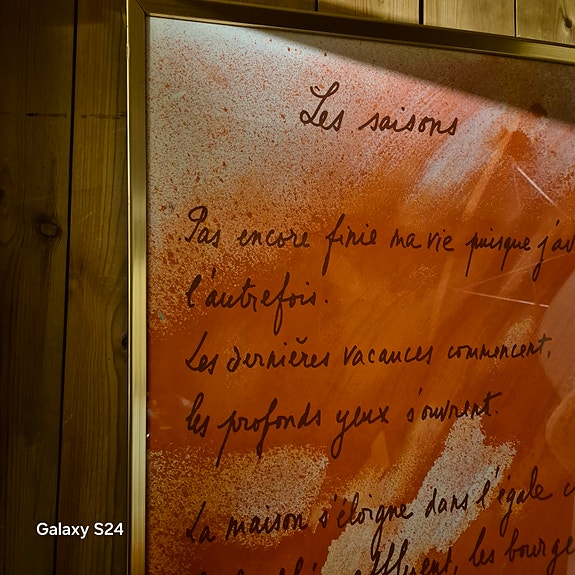 Les saisons
Pas encore finie ma vie puisque j'av
l'autrefois.
Les dernières vacances commencent,
les profonds yeux s'ouvrent.
La maison s'éloigne dans l'égale c
affluent, les bourge
Galaxy S24